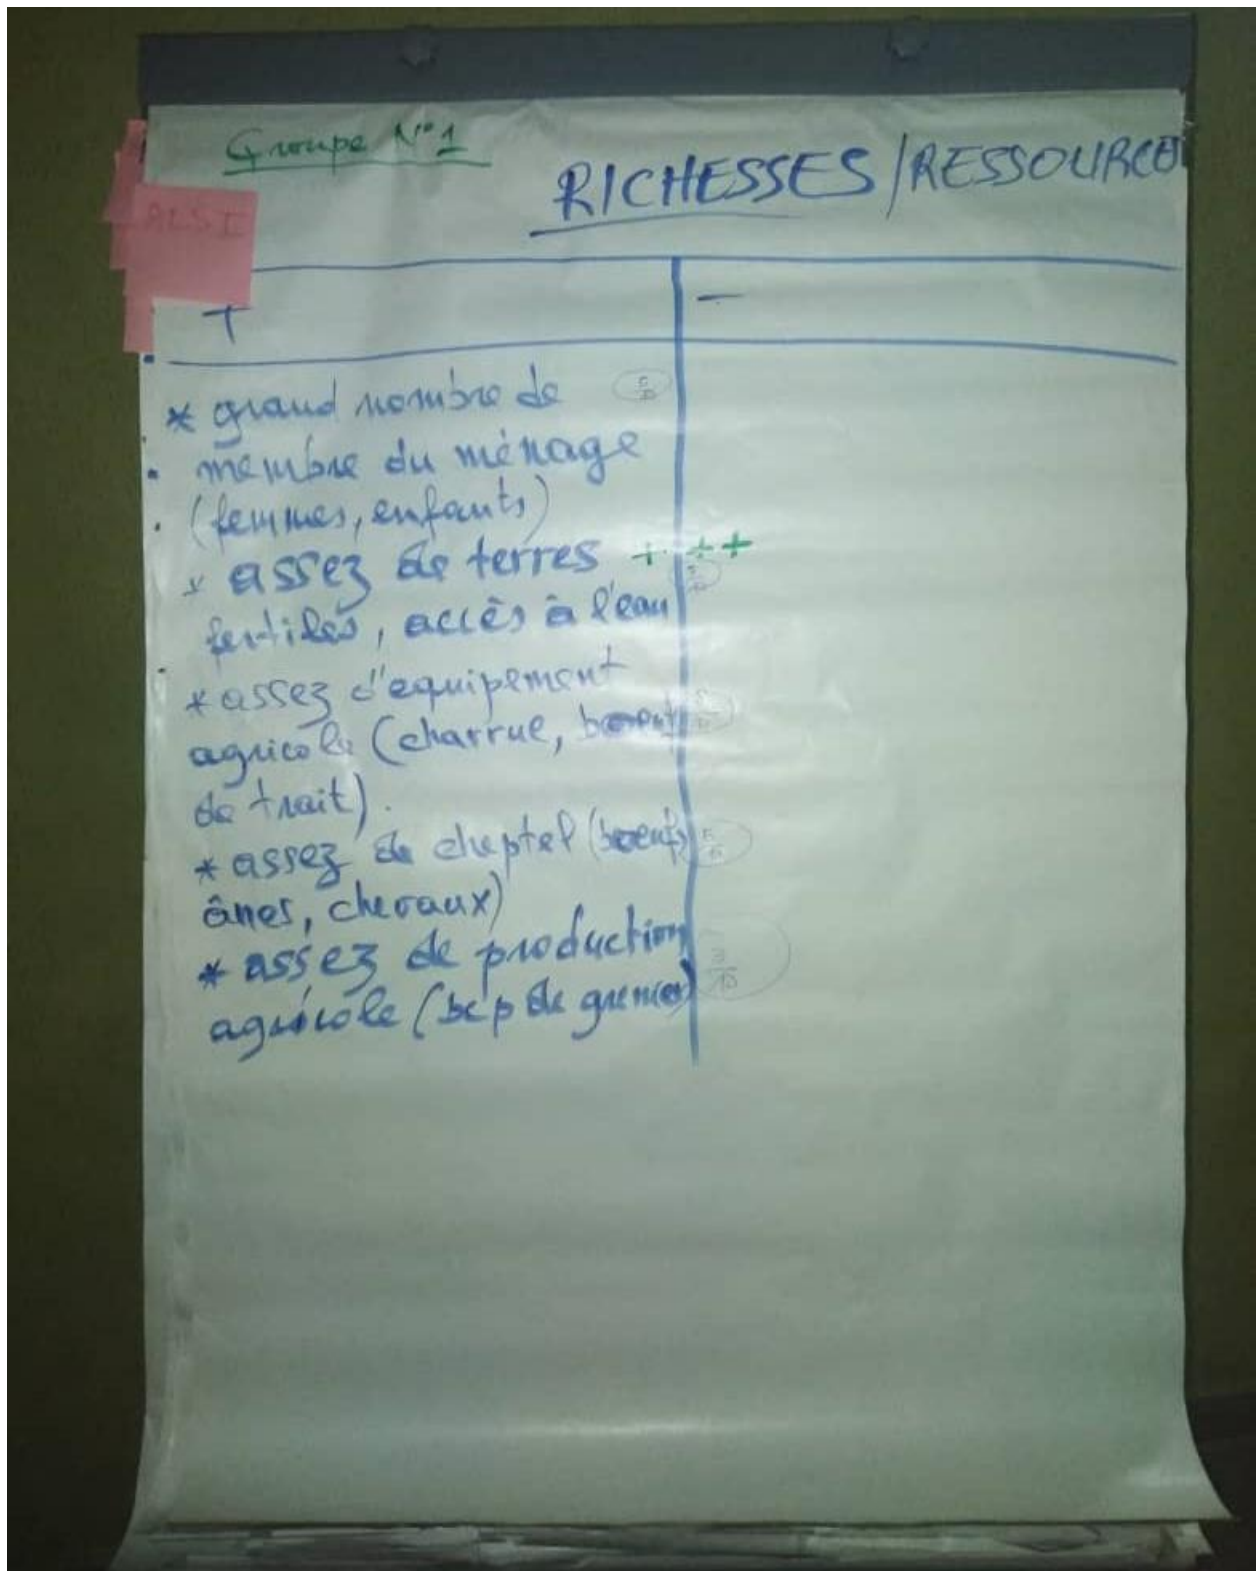 Groupe N°1
RICHESSES/RESSOURCE
ALSI
+ -
* grand nombre de
membre du ménage
(femmes, enfants)
* assez de terres +++
fertiles, accès à l'eau
* assez d'equipement
agricole (charrue, boeufs
de trait).
* assez de cheptel (boeufs
ânes, chevaux)
* assez de production
agricole (bcp de grenier)